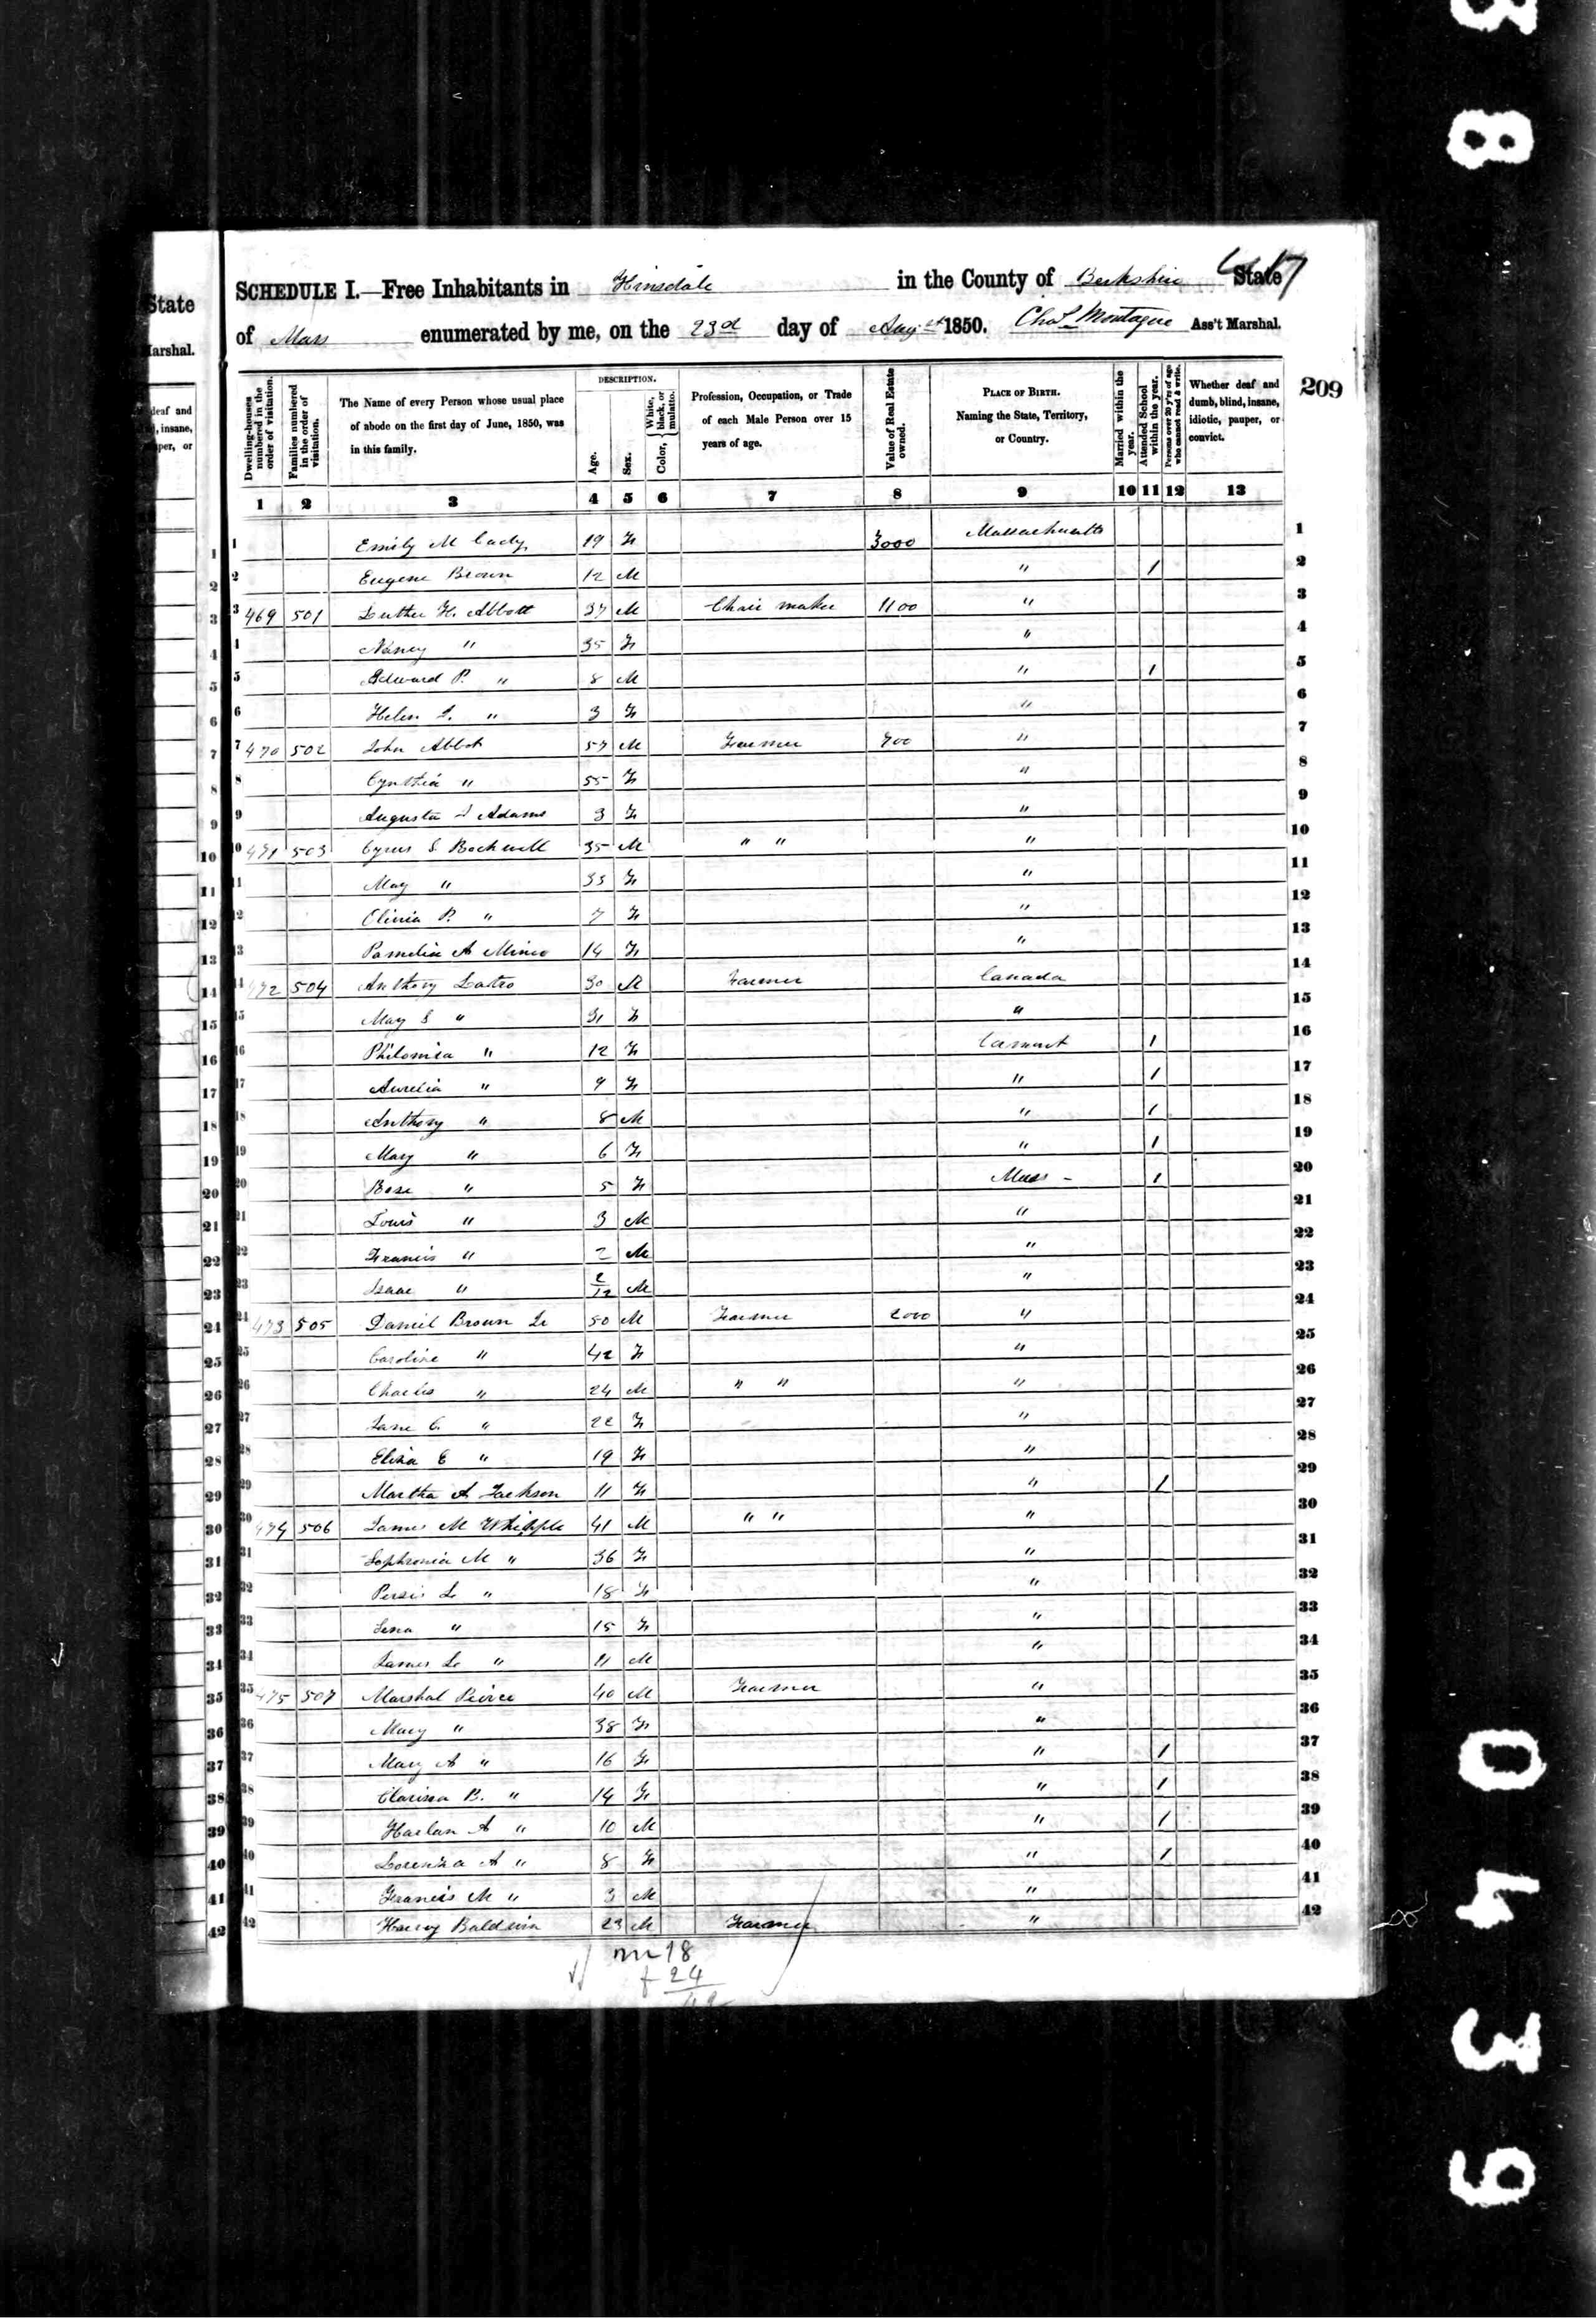 SCHEDULE I.—Free Inhabitants in Hinsdale in the County of Berkshire State
of Mass enumerated by me, on the 23d day of Augst 1850. Chas Montague Ass't Marshal.
209
Dwelling-houses numbered in the order of visitation.
Families numbered in the order of visitation.
The Name of every Person whose usual place of abode on the first day of June, 1850, was in this family.
DESCRIPTION.
Age.
Sex.
Color, White, black, or mulatto.
Profession, Occupation, or Trade of each Male Person over 15 years of age.
Value of Real Estate owned.
PLACE OF BIRTH. Naming the State, Territory, or Country.
Married within the year.
Attended School within the year.
Persons over 20 y'rs of age who cannot read & write.
Whether deaf and dumb, blind, insane, idiotic, pauper, or convict.
1 2 3 4 5 6 7 8 9 10 11 12 13
1 Emily M Cady 19 F 3000 Massachusetts 1
2 Eugene Brown 12 M " 1 2
3 469 501 Luther H. Abbott 37 M Chair maker 1100 " 3
4 Nancy " 35 F " 4
5 Edward P. " 8 M " 1 5
6 Helen L. " 3 F " 6
7 470 502 John Abbot 57 M Farmer 700 " 7
8 Cynthia " 55 F " 8
9 Augusta Adams 3 F " 9
10 471 503 Cyrus S 35 M " " " 10
11 May " 33 F " 11
12 P. " 7 F " 12
13 Pamelia A 14 F " 13
14 472 504 Anthony 30 M Farmer Canada 14
15 May S " 31 F " 15
16 " 12 F 1 16
17 Aurelia " 9 F " 1 17
18 Anthony " 8 M " 1 18
19 Mary " 6 F " 1 19
20 " 5 F Mass - 1 20
21 Louis " 3 M " 21
22 Francis " 2 M " 22
23 Isaac " 2/12 M " 23
24 473 505 Daniel Brown 50 M Farmer 2000 " 24
25 Caroline " 42 F " 25
26 Charles " 24 M " " " 26
27 Jane C. " 22 F " 27
28 Eliza E " 19 F " 28
29 Martha A Jackson 11 F " 1 29
30 474 506 James M Whipple 41 M " " " 30
31 Sophronia M " 36 F " 31
32 Persis L. " 18 F " 32
33 " 15 F " 33
34 James L. " 11 M " 34
35 475 507 Marshal Peirce 40 M Farmer " 35
36 Mary " 38 F " 36
37 Mary A " 16 F " 1 37
38 Clarissa B. " 14 F " 1 38
39 Harlan A " 10 M " 1 39
40 A " 8 F " 1 40
41 Francis M " 3 M " 41
42 Harvey Baldwin 23 M Farmer " 42
m 18
f 24
42
State
arshal.
deaf and
, insane,
per, or
8
0439